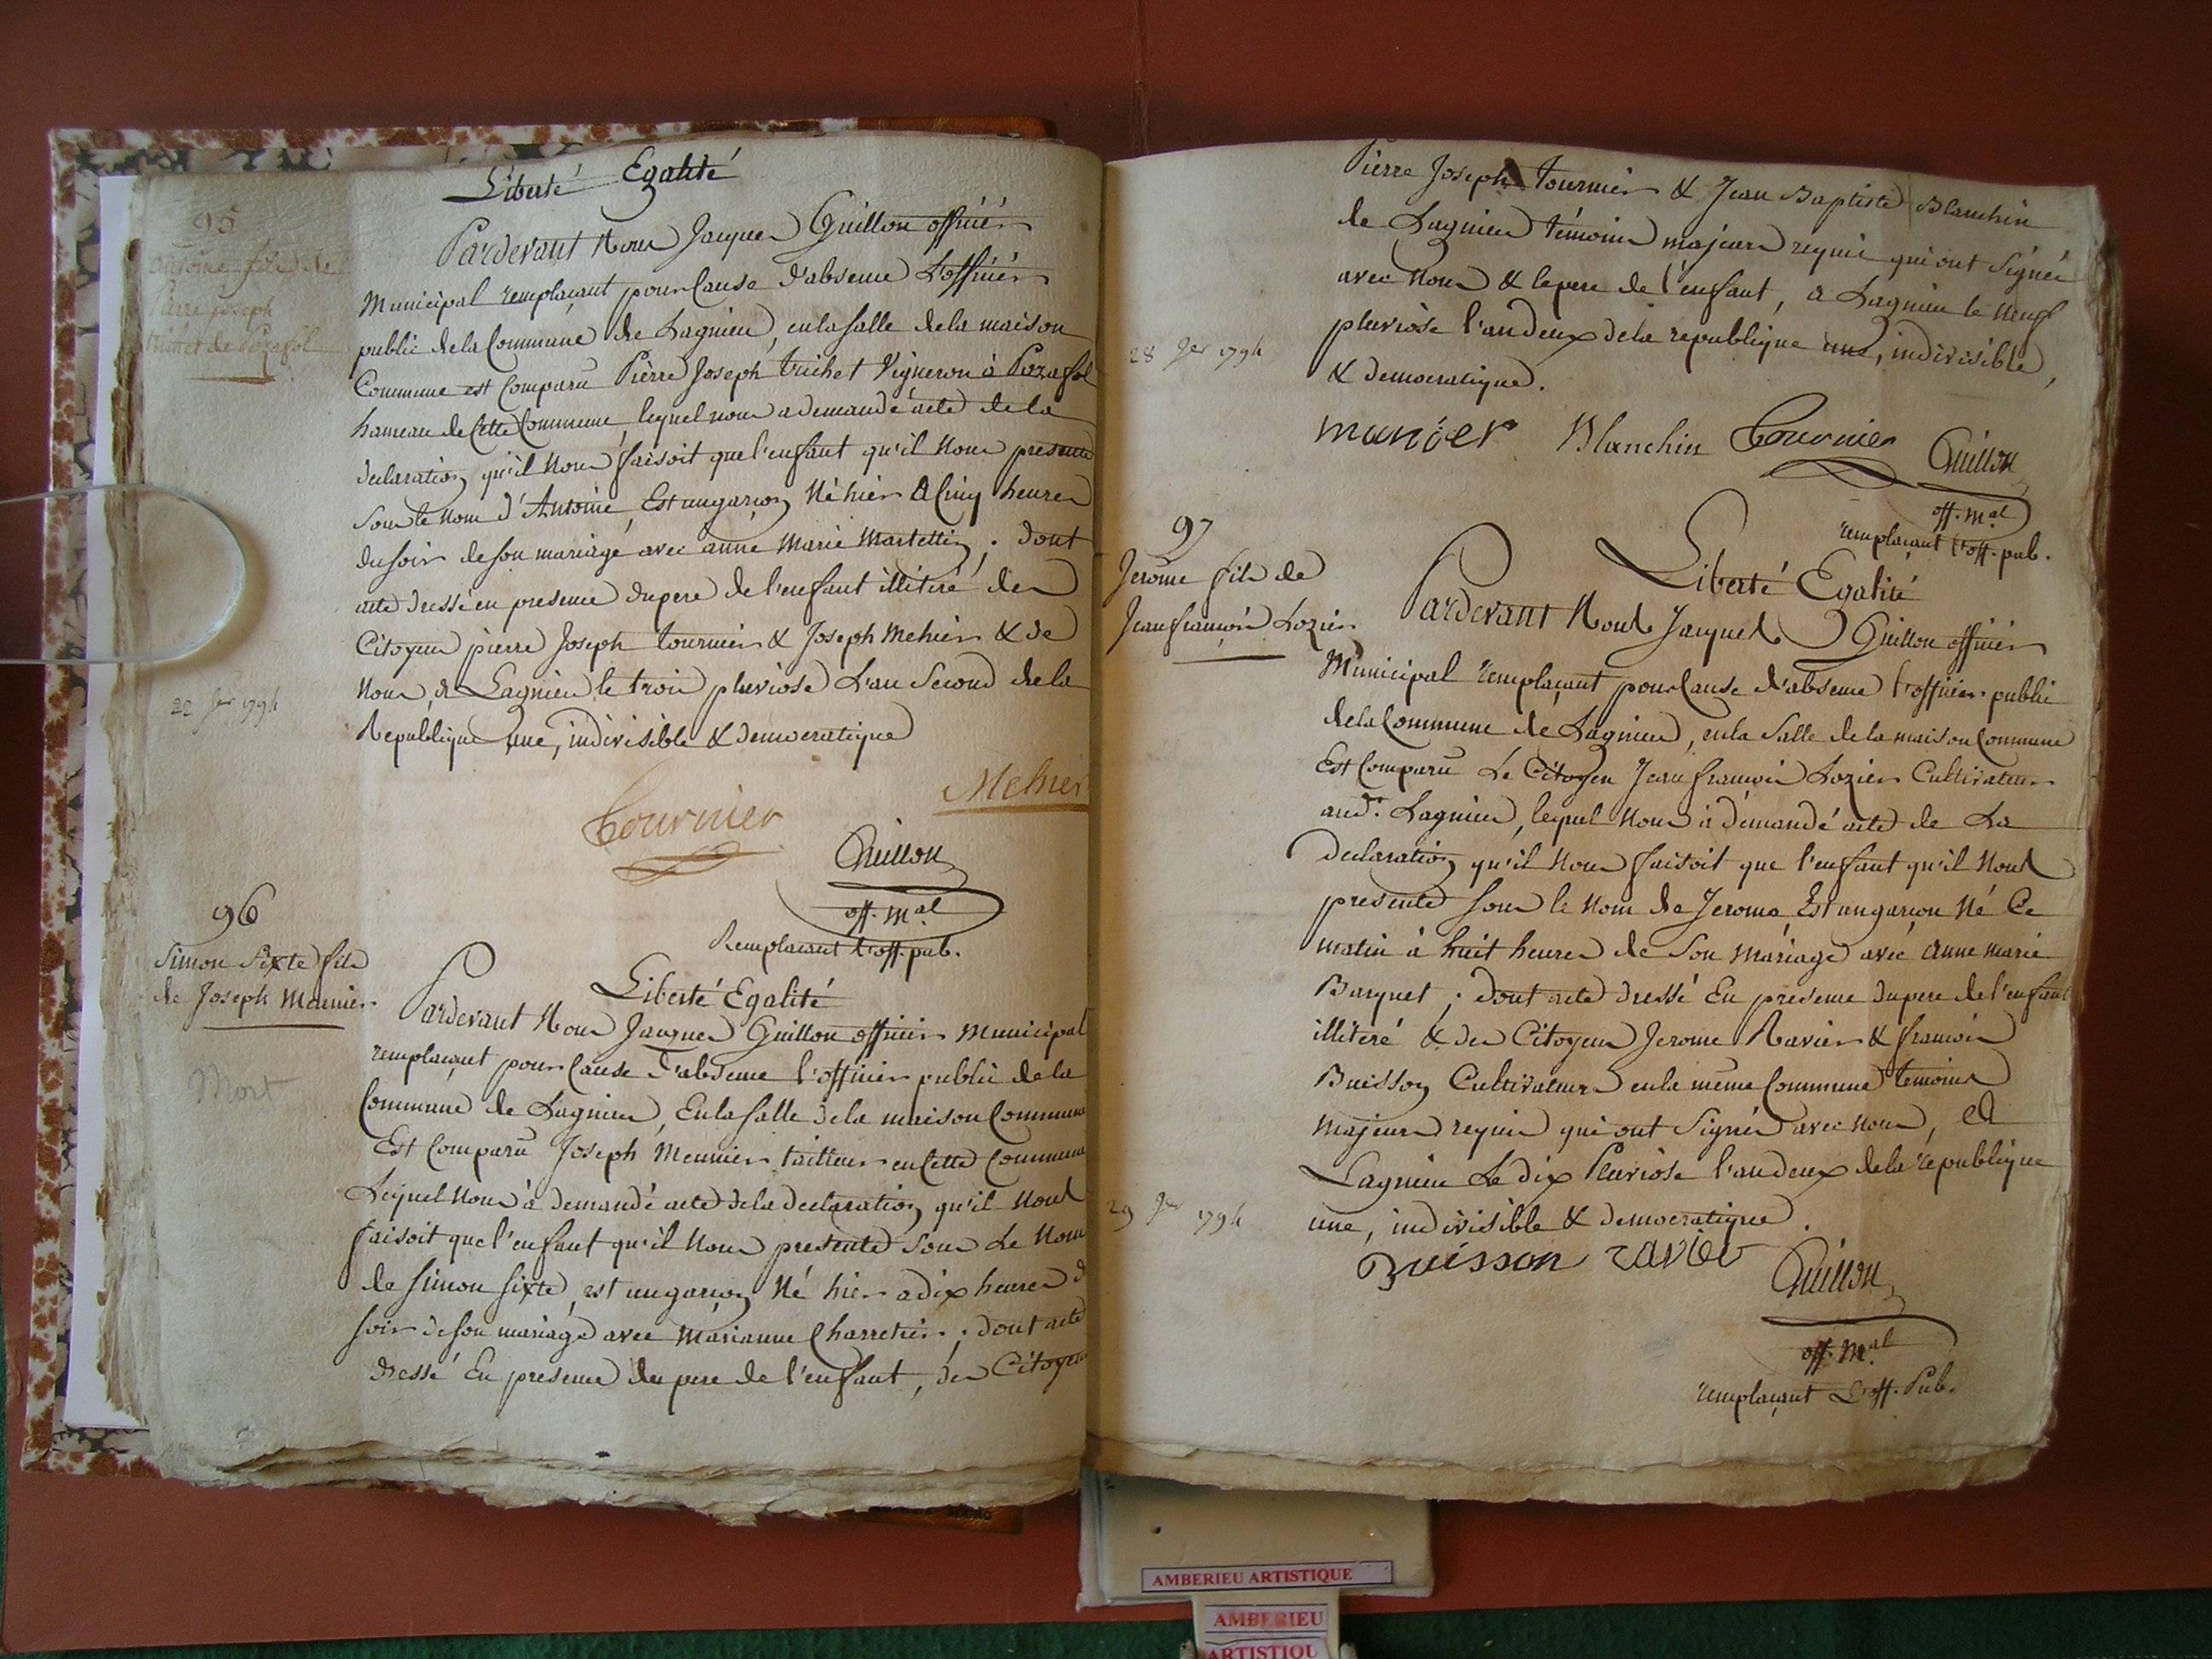 Liberté Egalité
95
antoine fils de
Pierre joseph
trichet de Pozafol
Pardevant Nous Jacques Guillon officier
Municipal remplaçant pour Cause d'absence L'officier
public dela Commune de Lagnieu, en la salle dela maison
Commune est Comparu Pierre Joseph trichet Vigneron à Pozafol
hameau de Cette Commune, lequel nous a demandé acte de la
declaration qu'il Nous faisoit que l'enfant qu'il Nous presente
sous le Nom d'Antoine, Est un garçon Né hier a Cinq heures
du soir de son mariage avec anne Marie Martettin; dont
acte dressé en presence du pere de l'enfant illiteré des
Citoyens pierre Joseph tournier & Joseph Mehier & de
Nous, a Lagnieu le trois pluviose L'an Second de la
Republique une, indivisible & democratique
22 jer 1794
tournier
Mehier
Guillon
off. mal
Remplacant l'off. pub.
96
Simon Sixte fils
de Joseph Meunier
Mort
Liberté Egalité
Pardevant Nous Jacques Guillon officier Municipal
remplaçant pour Cause d'absence l'officier public de la
Commune de Lagnieu, En la salle de la maison Commune
Est Comparu Joseph Meunier tailleur en Cette Commune
Lequel Nous à demandé acte de la declaration qu'il Nous
faisoit que l'enfant qu'il Nous presente sous Le Nom
de Simon Sixte, est un garçon Né hier a dix heures d
soir de son mariage avec Marianne Charretier; dont acte
dressé En presence du pere de l'enfant, des Citoyens
Pierre Joseph tournier & Jean Baptiste Blanchin
de Lagnieu témoins majeurs requis qui ont Signés
avec Nous & le pere de l'enfant, a Lagnieu le Neuf
pluviôse l'an deux de la republique une, indivisible,
& democratique.
28 jer 1794
munier Blanchin tournier Guillon
off. mal
remplaçant l'off. pub.
97
Jerôme fils de
Jean françois Lozier
Liberté Egalité
Pardevant Nous Jacques Guillon officier
Municipal remplaçant pour Cause d'absence l'officier public
de la Commune de Lagnieu, en la Salle de la maison Commune
Est Comparu Le Citoyen Jean françois Lozier Cultivateur
aud. Lagnieu, lequel Nous à demandé acte de La
declaration qu'il Nous faisoit que l'enfant qu'il Nous
presente sous le Nom de Jerome Est un garcon Né Ce
matin à huit heures de Son mariage avec anne marie
Barquet; dont acte dressé En presence du pere de l'enfant
illiteré & des Citoyens Jerome Ravier & francois
Buisson Cultivateurs en la même Commune temoins
majeurs requis qui ont Signés avec nous, a
Lagnieu Le dix Pluviose l'an deux de la republique
une, indivisible & democratique.
29 jer 1794
Buisson ravier Guillon
off. mal
remplaçant L'off. Pub.
AMBERIEU ARTISTIQUE
AMBERIEU
ARTISTIQU